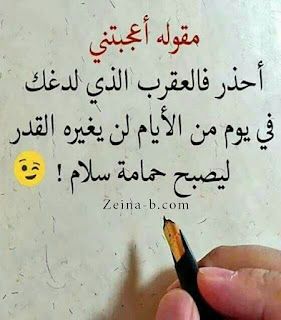 مقوله أعجبتني
أحذر فالعقرب الذي لدغك
في يوم من الأيام لن يغيره القدر
ليصبح حمامة سلام ! 😉
Zeina-b.com